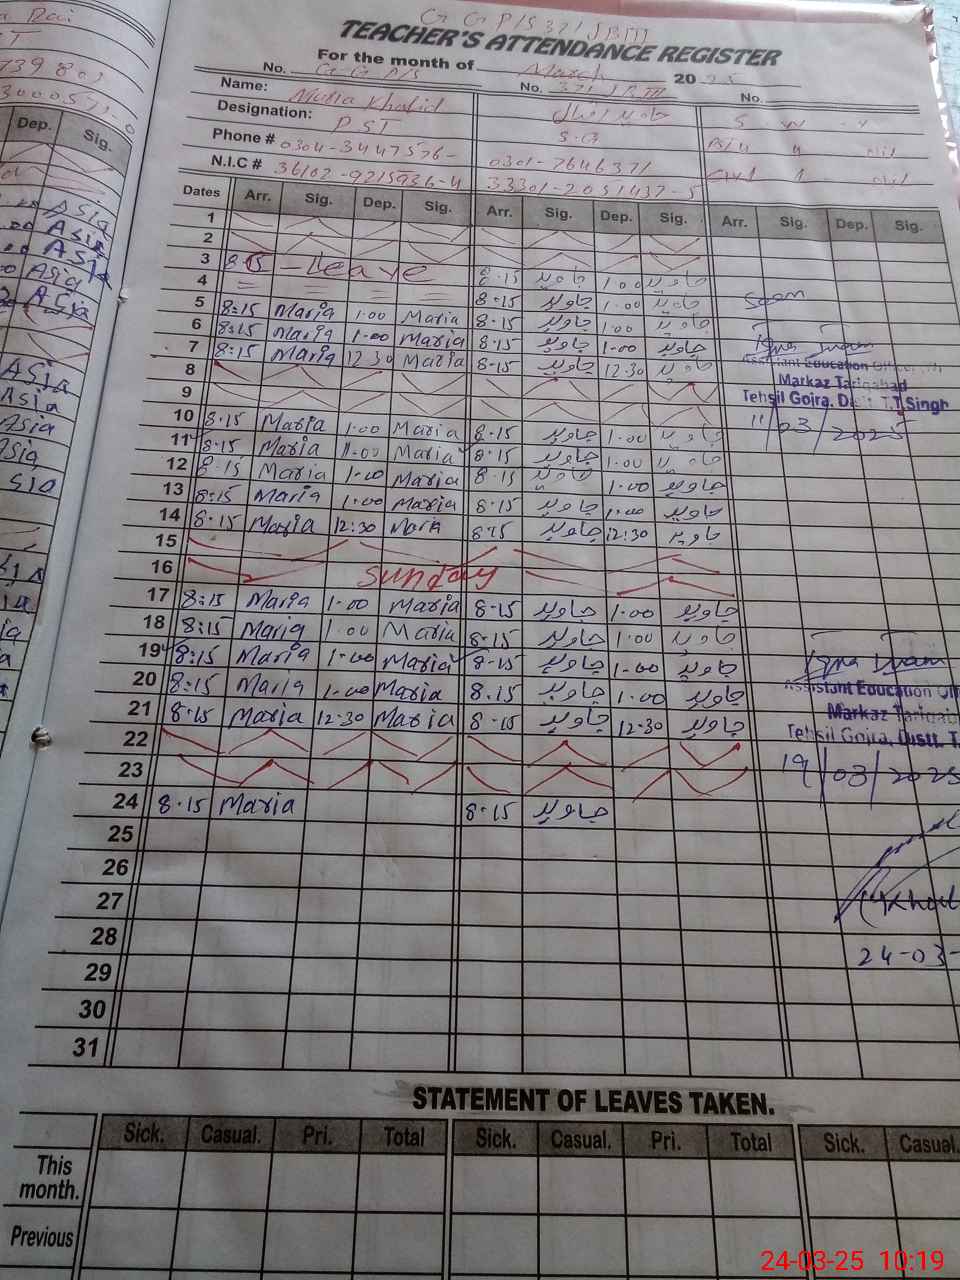 G G P/S 371 JB III
TEACHER'S ATTENDANCE REGISTER
For the month of March 2025
No. G G P/S No. 371 JB III No.
Name: Maria Khalid جاوید اقبال S W
Designation: PST S.G
Phone # 0304-3447576- 0301-7646371
N.I.C # 36102-9215936-4 33301-2051437-5
Dates Arr. Sig. Dep. Sig. Arr. Sig. Dep. Sig. Arr. Sig. Dep. Sig.
1
2
3 8:15 - Leave 8.15 جاوید 1.00 جاوید
4 8.15 جاوید 1.00 جاوید Seen
5 8:15 Maria 1.00 Maria 8.15 جاوید 1.00 جاوید
6 8:15 Maria 1.00 Maria 8.15 جاوید 1.00 جاوید
7 8:15 Maria 12 30 Maria 8.15 جاوید 12.30 جاوید
Assistant Education Officer
8 Markaz Tariqabad
9 Tehsil Gojra, Distt. T.T.Singh
10 8.15 Maria 1.00 Maria 8.15 جاوید 1.00 جاوید 11/03/2025
11 8.15 Maria 1.00 Maria 8.15 جاوید 1.00 جاوید
12 8.15 Maria 1.00 Maria 8.15 جاوید 1.00 جاوید
13 8:15 Maria 1.00 Maria 8.15 جاوید 1.00 جاوید
14 8.15 Maria 12:30 Maria 8.15 جاوید 12:30 جاوید
15
16 Sunday
17 8:15 Maria 1.00 Maria 8.15 جاوید 1.00 جاوید
18 8:15 Maria 1.00 Maria 8.15 جاوید 1.00 جاوید
19 8:15 Maria 1.00 Maria 8.15 جاوید 1.00 جاوید
20 8:15 Maria 1.00 Maria 8.15 جاوید 1.00 جاوید Assistant Education Off
21 8.15 Maria 12.30 Maria 8.15 جاوید 12.30 جاوید Markaz Tariqab
Tehsil Gojra, Distt. T.
22
23 19/03/2025
24 8.15 Maria 8.15 جاوید
25
26
27
28 24-03-
29
30
31
STATEMENT OF LEAVES TAKEN.
Sick. Casual. Pri. Total Sick. Casual. Pri. Total Sick. Casual.
This
month.
Previous
24-03-25 10:19
Dep. Sig.
Asia
Asia
Asia
Asia
Asia
Asia
Asia
Asia
Asia